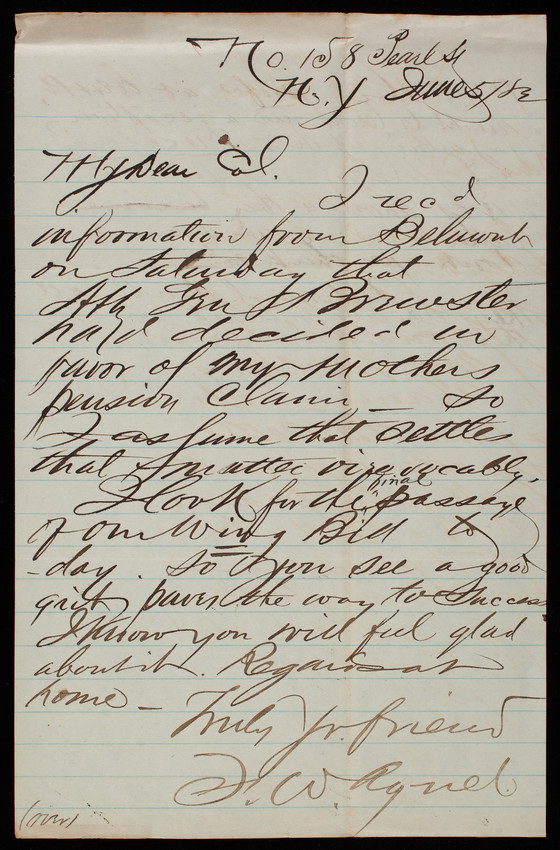 No. 158 Pearl St
N. Y June 5/82
My Dear Col.
I rec'd
information from
on Saturday that
Att Gen Brewster
had decided in
favor of my mothers
pension claim – so
I assume that settles
that matter irrevocably,
I look for the final passage
of our Wing Bill to
-day. So you see a good
grit paves the way to success
I know you will feel glad
about it. Regards at
home –
Truly Yr. friend
F. W.
(over)